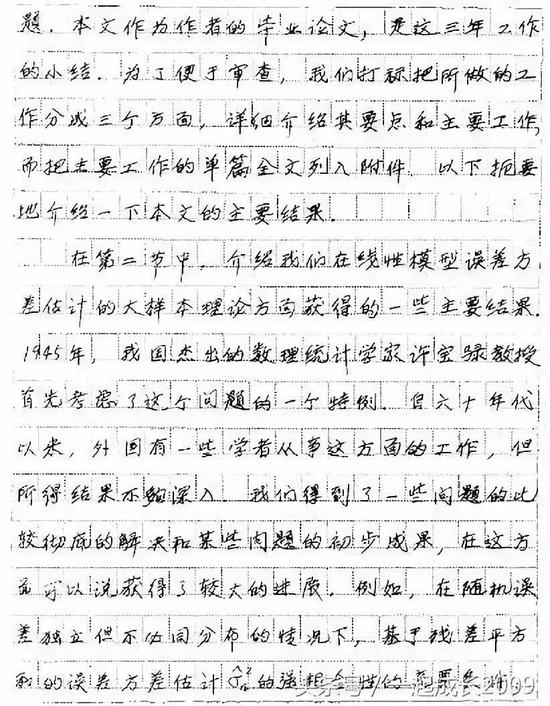 题. 本文作为作者的毕业论文, 是这三年工作
的小结. 为了便于审查, 我们打标把所做的工
作分成三个方面, 详细介绍其要点和主要工作,
而把主要工作的单篇全文列入附件. 以下扼要
地介绍一下本文的主要结果.
在第二节中, 介绍我们在线性模型误差方
差估计的大样本理论方面获得的一些主要结果.
1945年, 我国杰出的数理统计学家许宝騄教授
首先考虑了这个问题的一个特例. 自六十年代
以来, 外国有一些学者从事这方面的工作, 但
所得结果不够深入 我们得到了一些问题的比
较彻底的解决和某些问题的初步成果, 在这方
面可以说获得了较大的进展. 例如, 在随机误
差独立但不必同分布的情况下, 基于残差平方
和的误差方差估计 σ̂²ₙ 的强相合性的重要条件,
头条号/一起成长2009